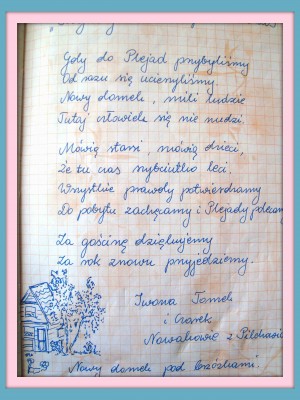 Gdy do Plejad przybyliśmy
Od razu się ucieszyliśmy
Nowy domek, mili ludzie
Tutaj człowiek się nie nudzi.
Mówią starsi, mówią dzieci,
Że tu czas szybciutko leci.
Wszystkie prawdy potwierdzamy
Do pobytu zachęcamy i Plejady polecam
Za gościnę dziękujemy
Za rok znowu przyjedziemy.
Iwona Tomek
i Czarek
Nowakowie z
Nowy domek pod brzózkami.